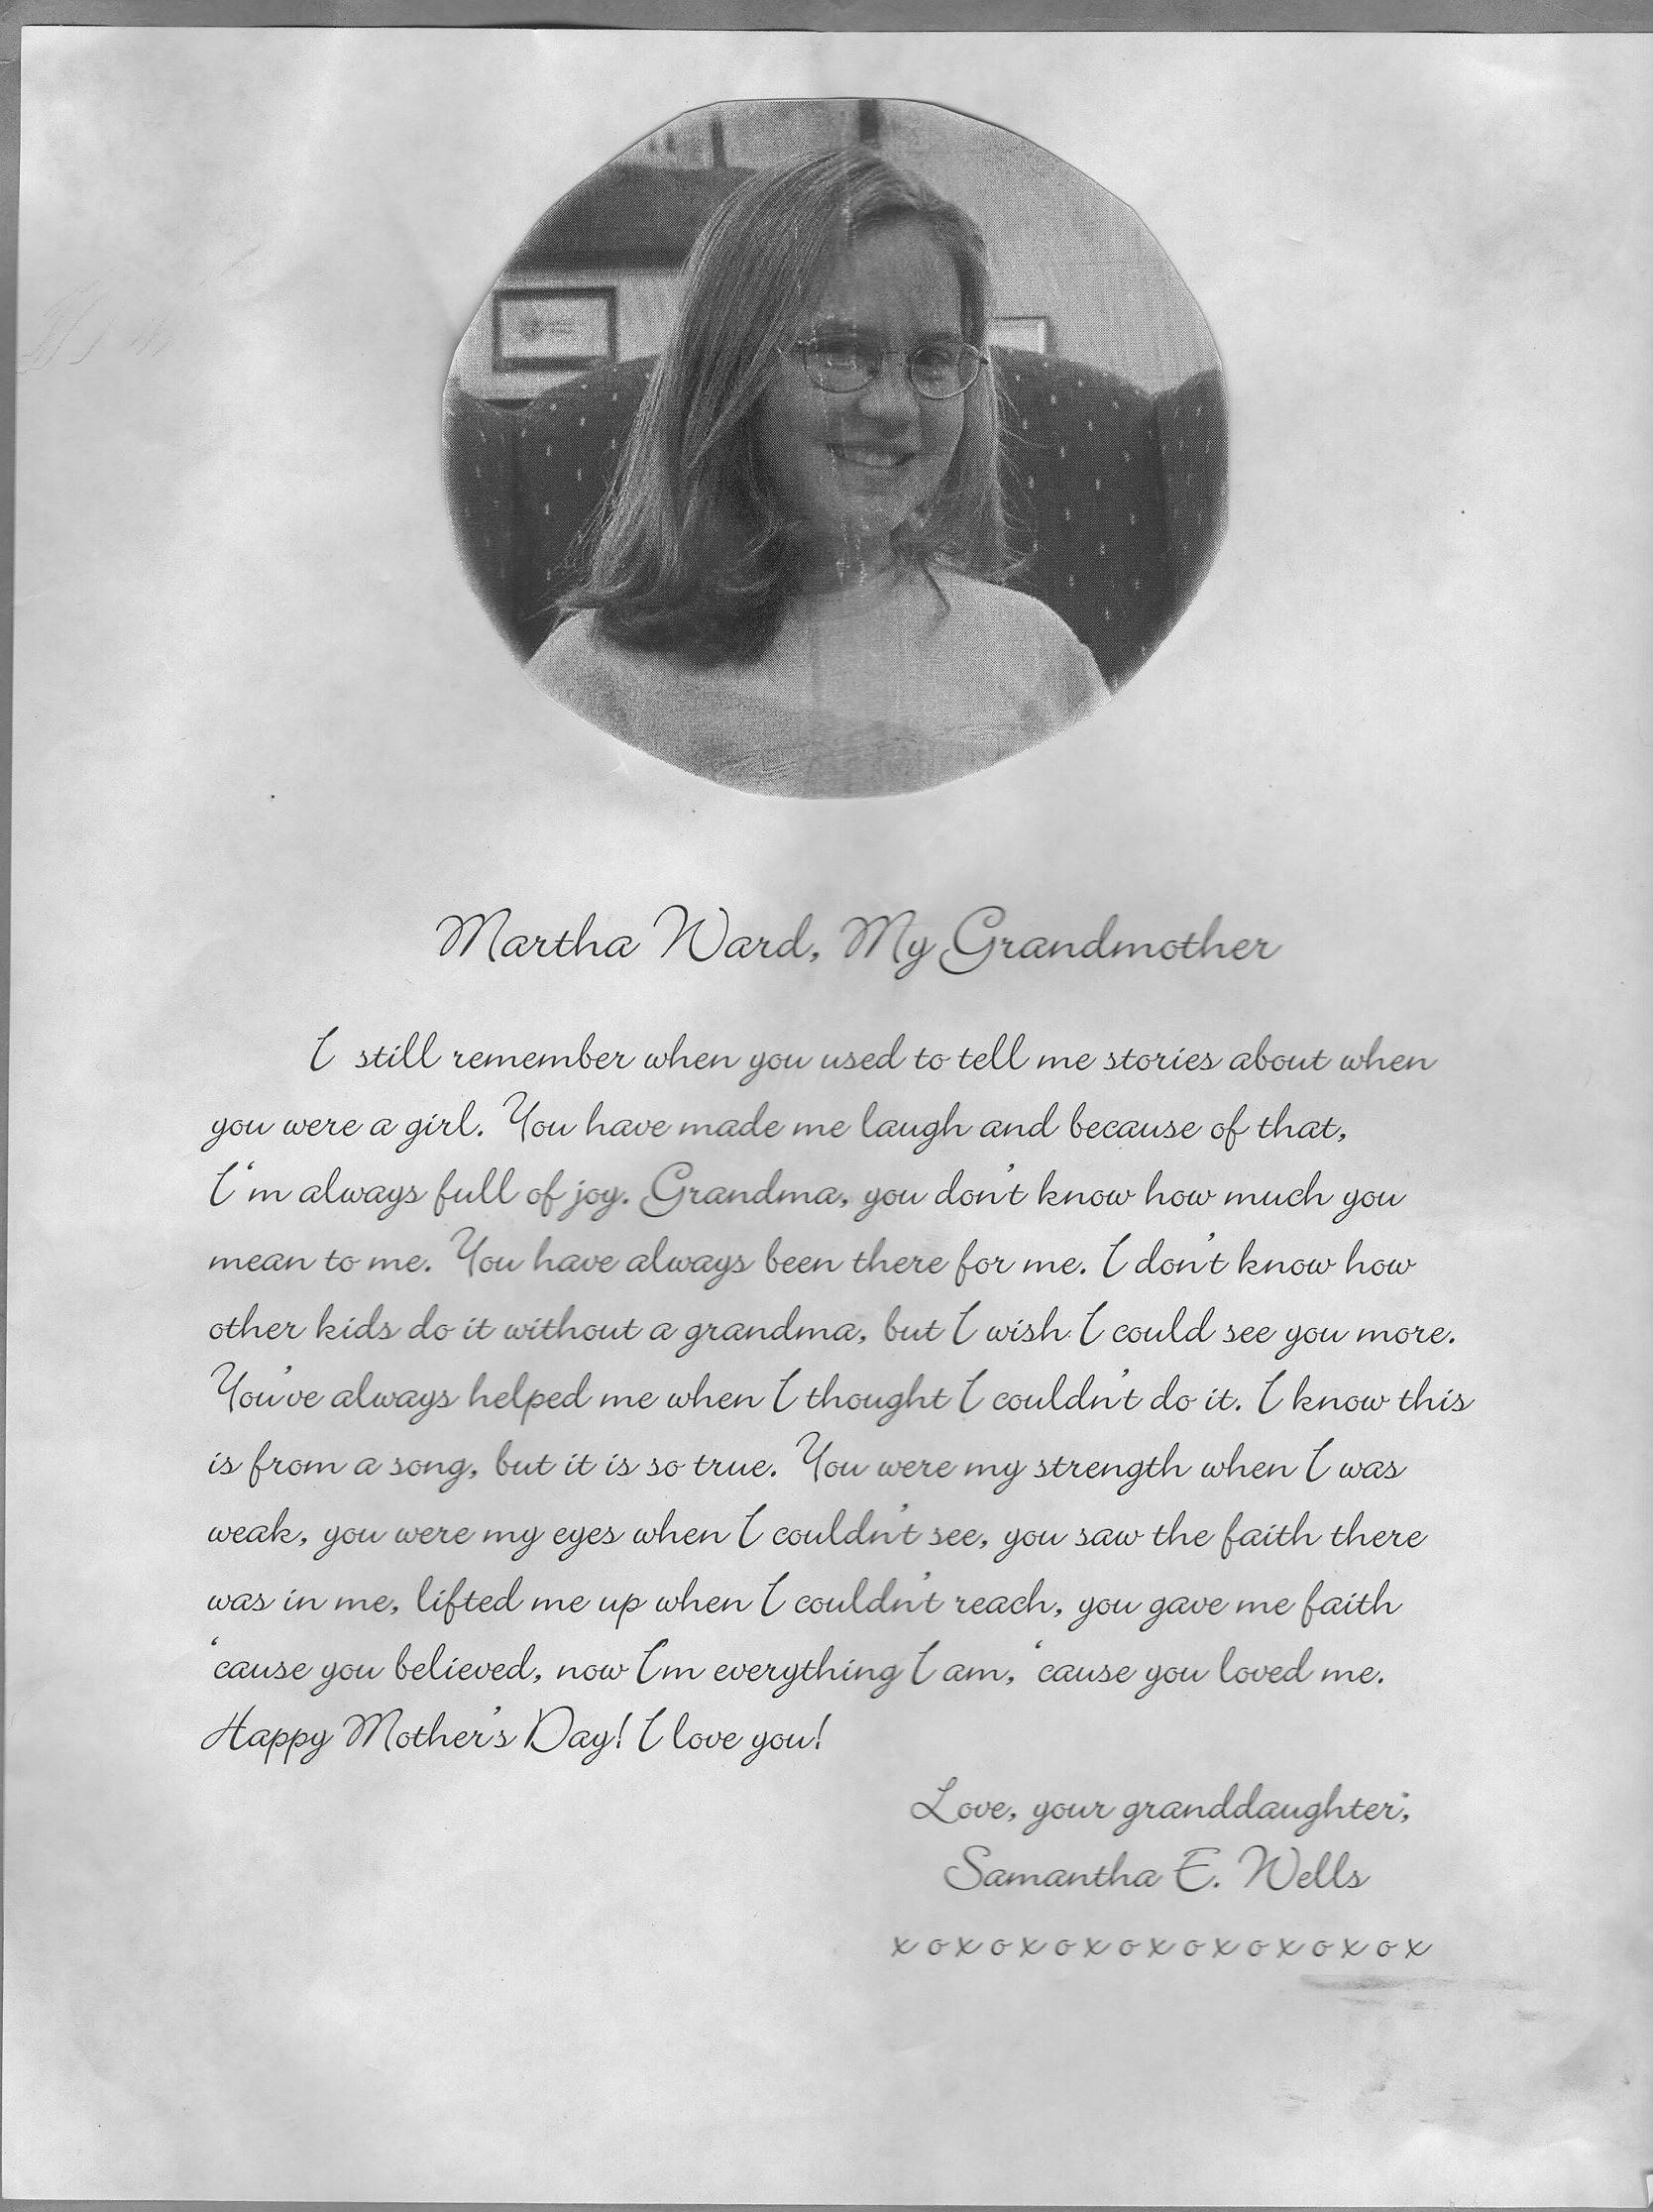 Martha Ward, My Grandmother
I still remember when you used to tell me stories about when
you were a girl. You have made me laugh and because of that,
I'm always full of joy. Grandma, you don't know how much you
mean to me. You have always been there for me. I don't know how
other kids do it without a grandma, but I wish I could see you more.
You've always helped me when I thought I couldn't do it. I know this
is from a song, but it is so true. You were my strength when I was
weak, you were my eyes when I couldn't see, you saw the faith there
was in me, lifted me up when I couldn't reach, you gave me faith
'cause you believed, now I'm everything I am, 'cause you loved me.
Happy Mother's Day! I love you!
Love, your granddaughter,
Samantha E. Wells
x o x o x o x o x o x o x o x o x